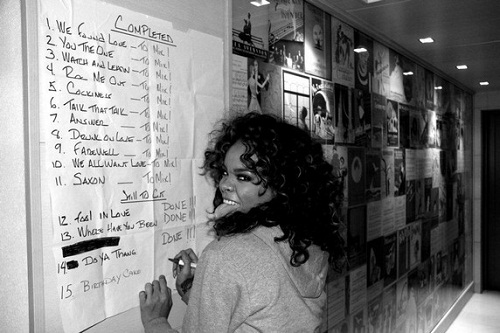 COMPLETED
1. WE FOUND LOVE - TO MIX!
2. YOU THE ONE - TO MIX!
3. WATCH AND LEARN - TO MIX!
4. ROC ME OUT - TO MIX!
5. COCKINESS - TO MIX!
6. TALK THAT TALK - TO MIX!
7. ANSWER - TO MIX!
8. DRUNK ON LOVE - TO MIX!
9. FAREWELL - TO MIX!
10. WE ALL WANT LOVE - TO MIX!
11. SAXON - TO MIX!
STILL TO CUT
12. FOOL IN LOVE DONE!!!
13. WHERE HAVE YOU BEEN DONE!!!
14 DO YA THANG DONE!!!
15 BIRTHDAY CAKE